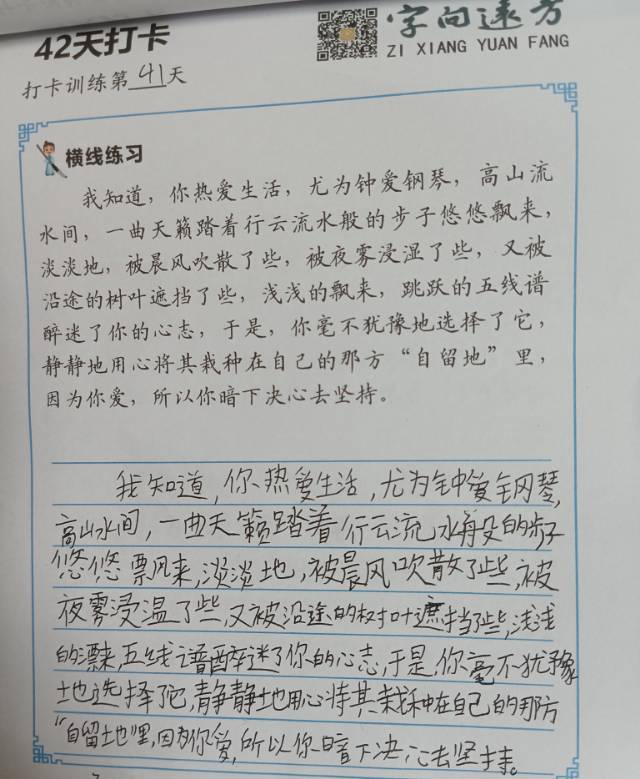 42天打卡
字向远方
ZI XIANG YUAN FANG
打卡训练第41天
横线练习
我知道，你热爱生活，尤为钟爱钢琴，高山流
水间，一曲天籁踏着行云流水般的步子悠悠飘来，
淡淡地，被晨风吹散了些，被夜雾浸湿了些，又被
沿途的树叶遮挡了些，浅浅的飘来，跳跃的五线谱
醉迷了你的心志，于是，你毫不犹豫地选择了它，
静静地用心将其栽种在自己的那方“自留地”里，
因为你爱，所以你暗下决心去坚持。
我知道,你热爱生活,尤为钟爱钢琴,
高山水间,一曲天籁踏着行云流水般的步子
悠悠飘来,淡淡地,被晨风吹散了些,被
夜雾浸温了些,又被沿途的树叶遮挡了些,浅浅
的漂来,五线谱醉迷了你的心志,于是,你毫不犹豫
地选择了它,静静地用心将其栽种在自己的那方
“自留地里,因为你爱,所以你暗下决心去坚持。